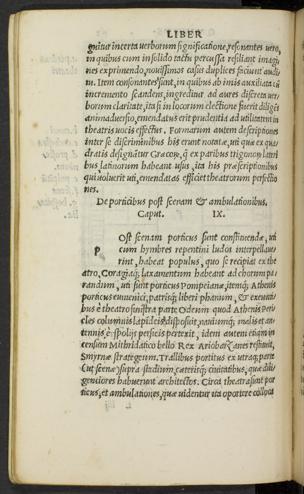 LIBER
gnitur incerta uerborum significatione, resonantes uero,
in quibus cum in solido tactu percussa resiliant imagi
nes exprimendo, nouissimos casus duplices faciunt audi
tu. Item consonantes sunt, in quibus ab imis auxiliata cū
incremento scandens, ingreditur ad aures discreta uer
borum claritate, ita si in locorum electione fuerit diligēs
animaduersio, emendatus erit prudentia ad utilitatem in
theatris uocis effectus. Formarum autem descriptiones
inter se discriminibus his erunt notatæ, uti quæ ex qua
dratis designātur Græcorꝝ, q̄ ex paribus trigonorū lateri
bus latinorum habeant usus, ita his præscriptionibus
qui uoluerit uti, emendatas efficiet theatrorum perfectio
nes.
De porticibus post scenam & ambulationibus.
Caput. IX.
POst scenam porticus sunt constituendæ, uti
cum hymbres repentini ludos interpellaue
rint, habeat populus, quo se recipiat ex the
atro, Coragiaq; laxamentum habeant ad chorum pa
randum, uti sunt porticus Pompeianæ, itemq; Athenis
porticus eumenici, patrisq; liberi phanum, & exeunti
bus è theatro sinistra parte Odeum quod Athenis Peri
cles columnis lapideis disposuit, nauiumq; malis et an
tennis è spolijs persicis pertexit, idem autem etiam in
censum Mithridatico bello Rex Ariobarzanes restituit,
Smyrnæ strategeum. Trallibus porticus ex utraq; parte
(ut scenæ) supra stadium, cæterisq; ciuitatibus, quæ dili
gentiores habuerunt architectos. Circa theatra sunt por
ticus, et ambulationes, quæ uidentur ita oportere colloca